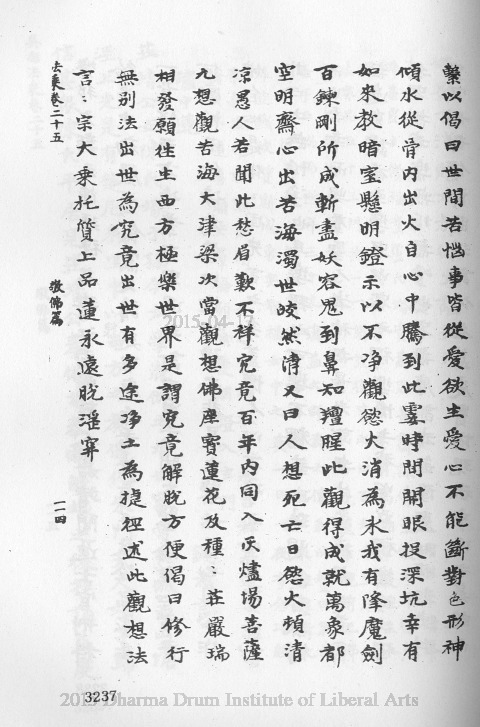 繫以偈曰世間苦惱事皆從愛欲生愛心不能斷對色形神
傾水從骨內出火自心中騰到此霎時間開眼投深坑幸有
如來教暗室懸明鐙示以不净觀慾火消為氷我有降魔劍
百鍊剛所成斬盡妖容鬼到鼻知羶腥此觀得成就萬象都
空明齋心出苦海濁世皎然清又曰人想死亡日慾火頓清
凉愚人若聞此愁眉歎不祥究竟百年內同入灰爐場菩薩
九想觀苦海大津梁次當觀想佛座寶蓮花及種〻莊嚴瑞
相發願往生西方極樂世界是謂究竟解脫方便偈曰修行
無別法出世為究竟出世有多途净土為捷徑述此觀想法
言〻宗大乘托質上品蓮永遠脫淫穽
去乘卷二十五
敬佛篇
一一四
3237
2015-04-17
2015 Dharma Drum Institute of Liberal Arts